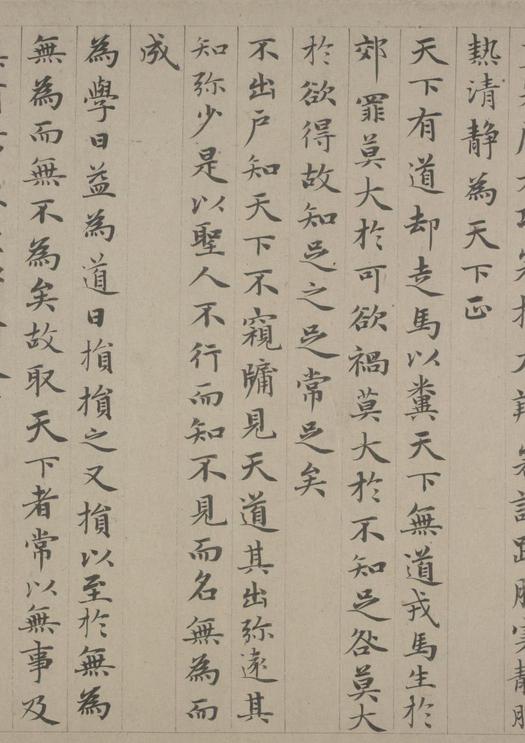 大巧若拙大辯若訥躁勝寒靜勝
熱清靜為天下正
天下有道却走馬以糞天下無道戎馬生於
郊罪莫大於可欲禍莫大於不知足咎莫大
於欲得故知足之足常足矣
不出戶知天下不窺牖見天道其出弥遠其
知弥少是以聖人不行而知不見而名無為而
成
為學日益為道日損損之又損以至於無為
無為而無不為矣故取天下者常以無事及